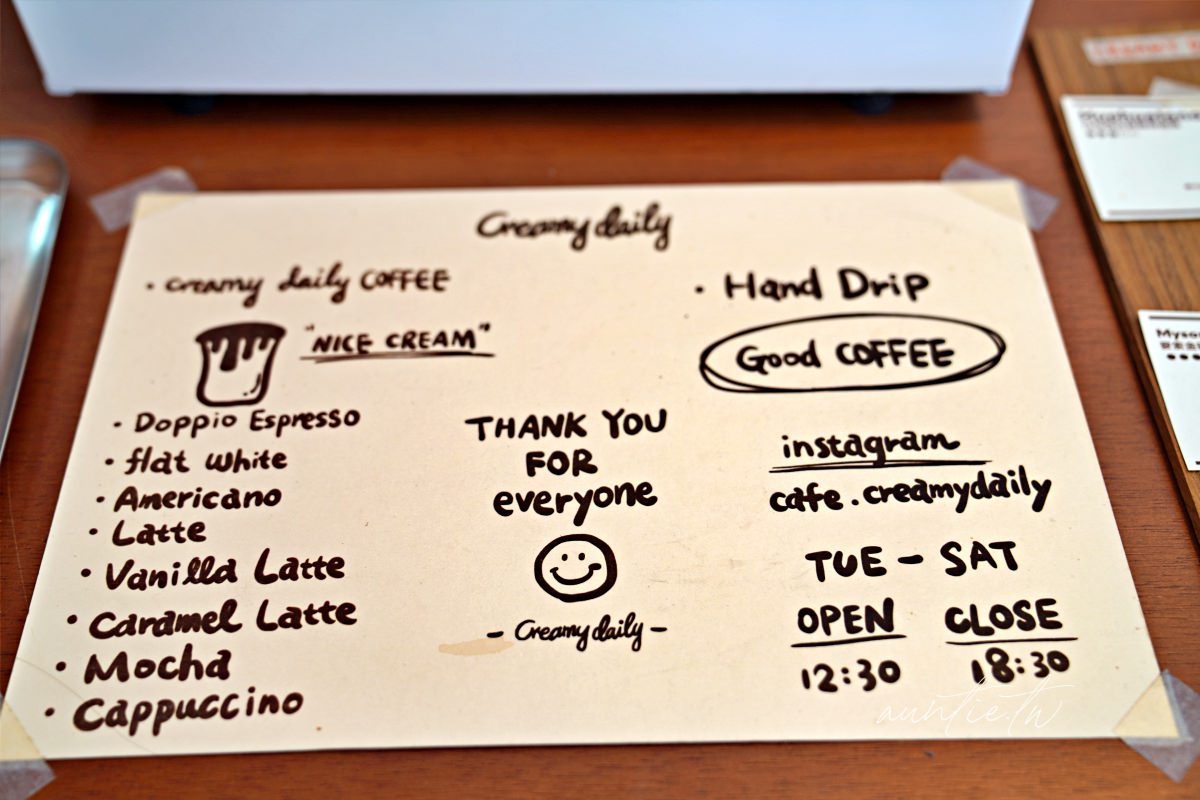 Creamy daily
· creamy daily COFFEE
"NICE CREAM"
· Doppio Espresso
· flat white
· Americano
· Latte
· Vanilla Latte
· Caramel Latte
· Mocha
· Cappuccino
THANK YOU
FOR
everyone
– Creamy daily –
· Hand Drip
Good COFFEE
instagram
cafe.creamydaily
TUE – SAT
OPEN CLOSE
12:30 18:30
auntie.tw